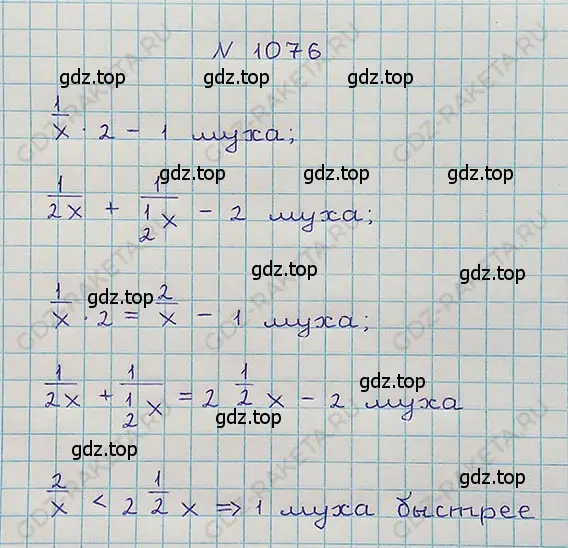 N 1076
gdz.top gdz.top
1/x · 2 – 1 муха;
gdz.top gdz.top
1/2x + 1/(1/2 x) – 2 муха;
gdz.top gdz.top
gdz.top
1/x · 2 = 2/x – 1 муха;
gdz.top
1/2x + 1/(1/2 x) = 2 1/2 x – 2 муха
gdz.top gdz.top
2/x < 2 1/2 x ⇒ 1 муха быстрее
GDZ-RAKETA.RU